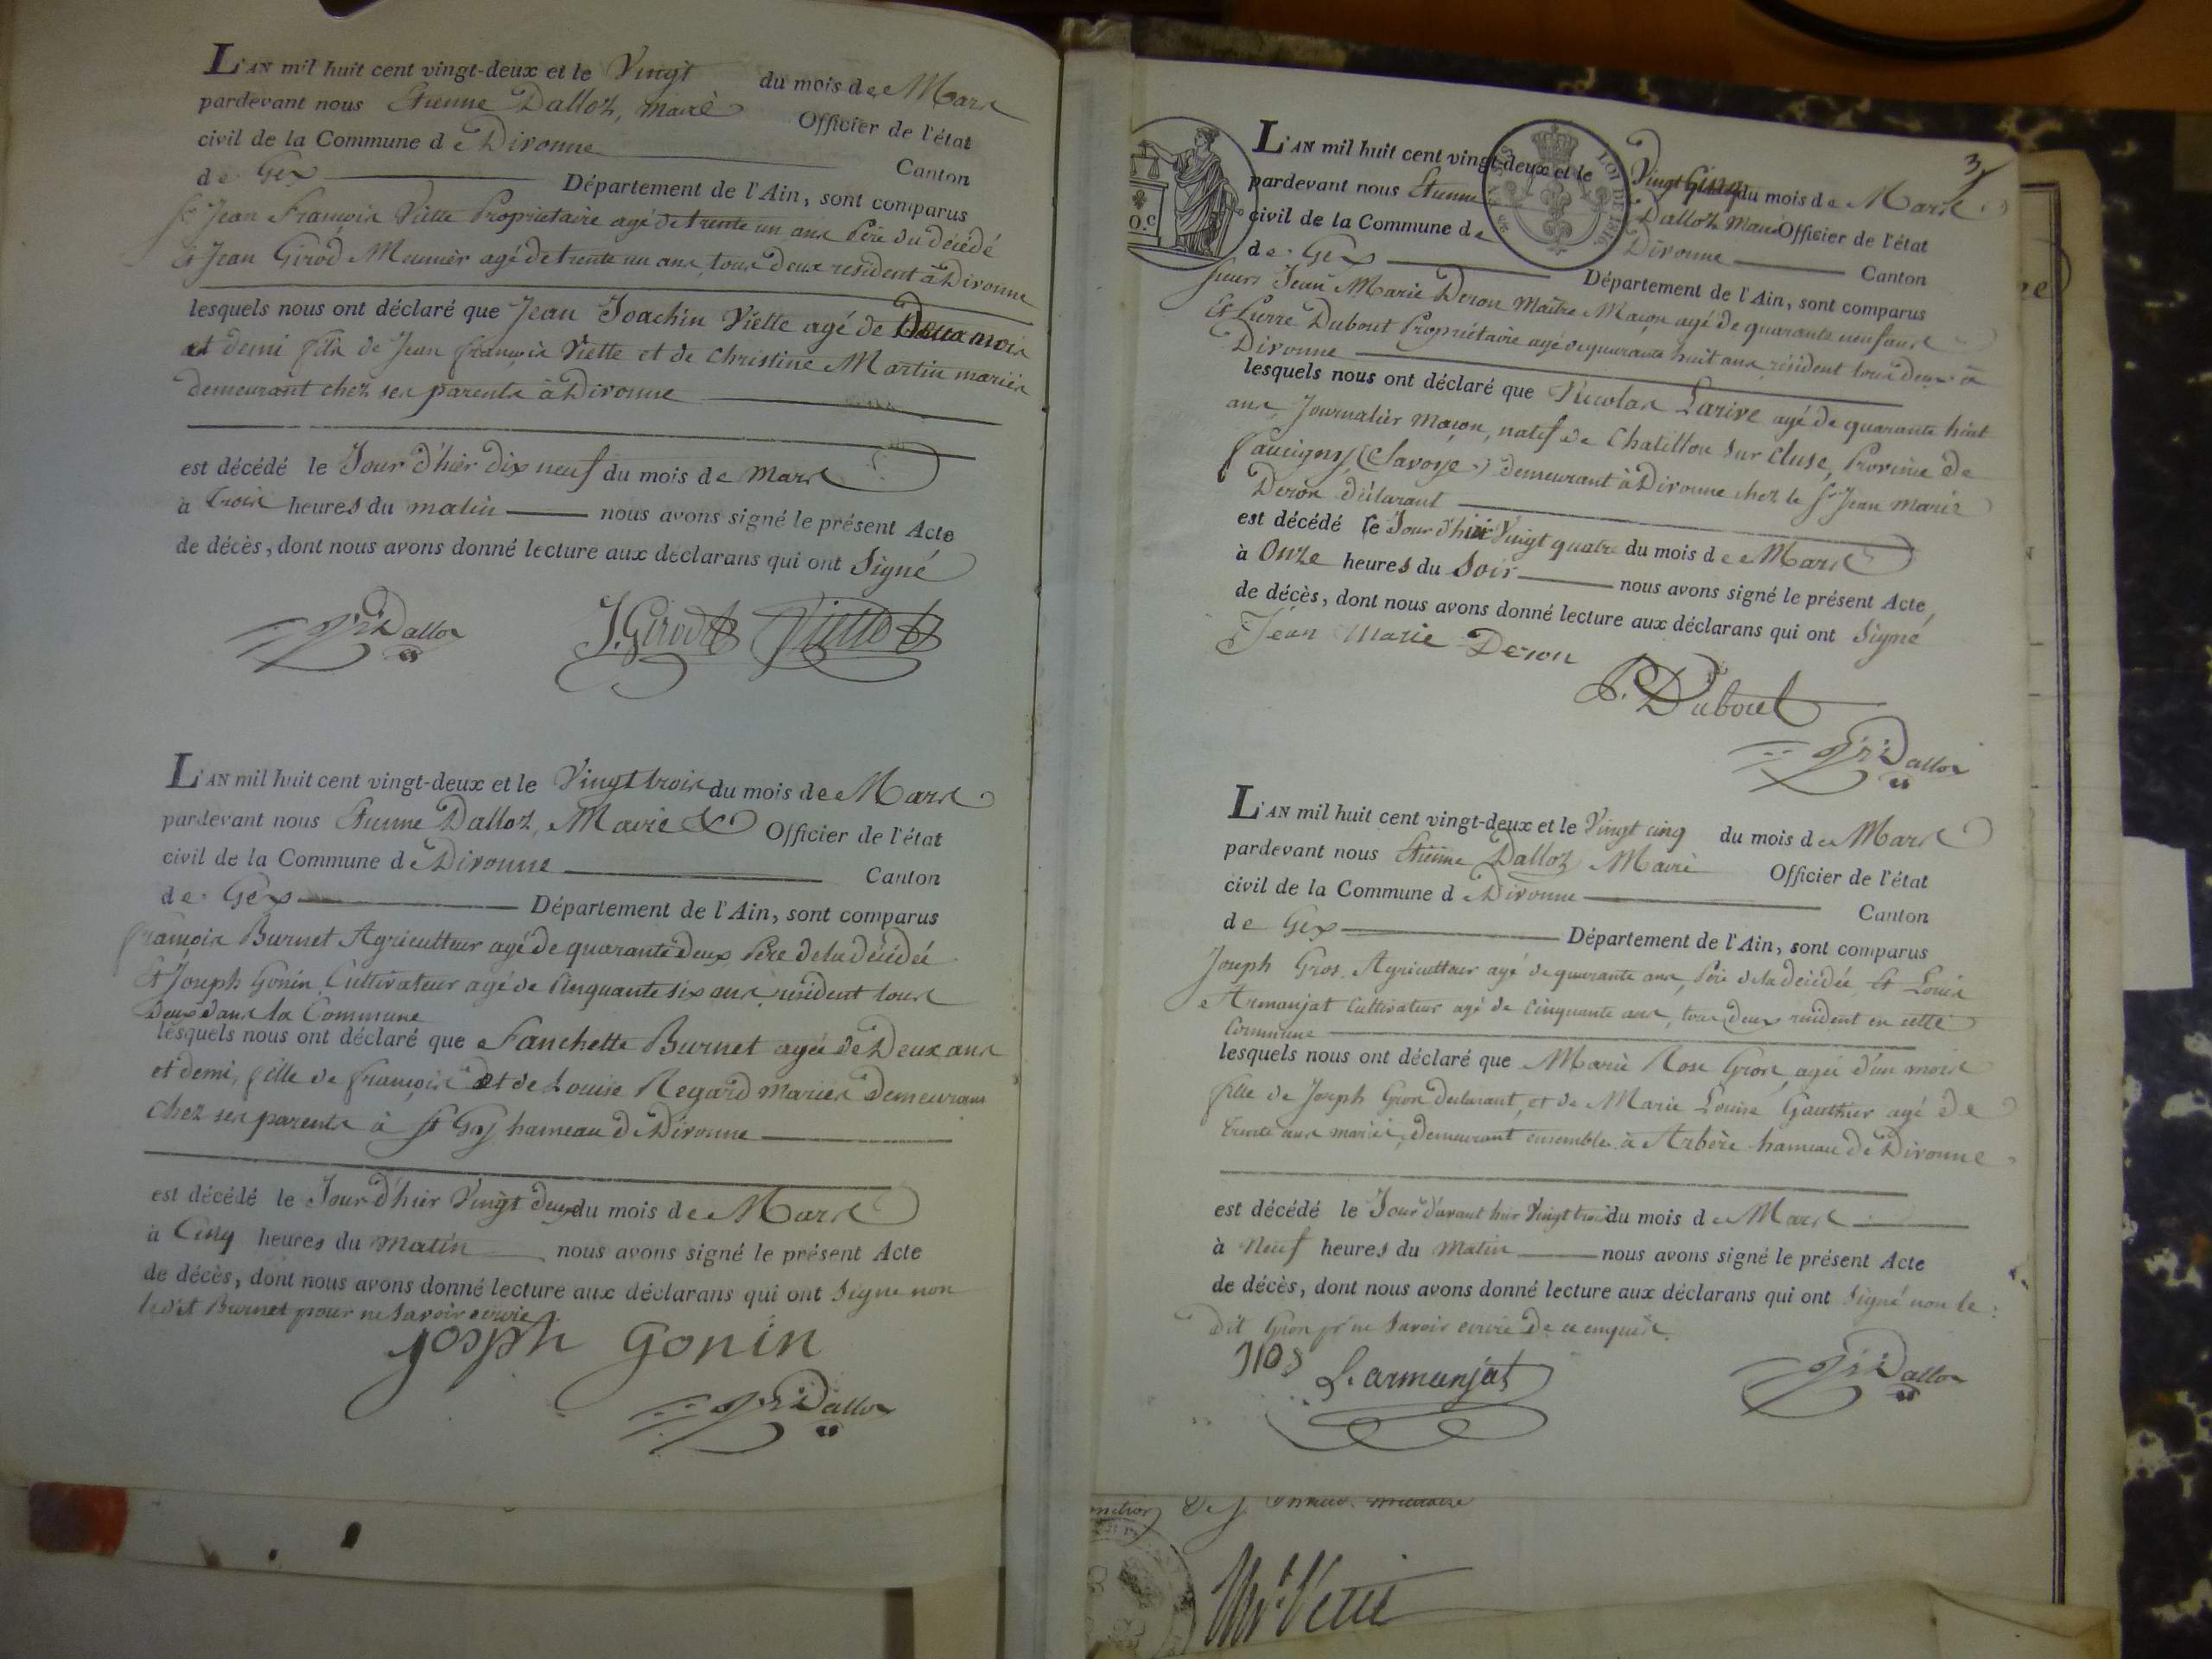 L'AN mil huit cent vingt-deux et le Vingt du mois de Mars
pardevant nous Etienne Dalloz, maire Officier de l'état
civil de la Commune de Divonne Canton
de Gex Département de l'Ain, sont comparus
Sr Jean François Viette Propriétaire agé de trente un ans Père du décédé
Et Jean Girod Meunier agé de trente un ans, tous deux résident à Divonne
lesquels nous ont déclaré que Jean Joachin Viette agé de Deux mois
et demi fils de Jean françois Viette et de Christine Martin mariés
demeurant chez ses parents à Divonne
est décédé le Jour d'hier dix neuf du mois de Mars
à trois heures du matin nous avons signé le présent Acte
de décès, dont nous avons donné lecture aux déclarans qui ont Signé
J. Girod Viette
Dalloz
L'AN mil huit cent vingt-deux et le Vingt trois du mois de Mars
pardevant nous Etienne Dalloz, Maire Officier de l'état
civil de la Commune de Divonne Canton
de Gex Département de l'Ain, sont comparus
françois Burnet Agriculteur agé de quarante deux Père de la décédée
Et Joseph Gonin Cultivateur agé de Cinquante six ans résident tous
Deux dans la Commune
lesquels nous ont déclaré que Fanchette Burnet agée de Deux ans
et demi, fille de françois et de Louise Regard mariés Demeurans
chez ses parents à St Gix hameau de Divonne
est décédé le Jour d'hier Vingt deux du mois de Mars
à Cinq heures du matin nous avons signé le présent Acte
de décès, dont nous avons donné lecture aux déclarans qui ont Signé non
ledit Burnet pour ne savoir ecrire
Joseph Gonin
Dalloz
3
L'AN mil huit cent vingt-deux et le Vingt Cinq du mois de Mars
pardevant nous Etienne Dalloz Maire Officier de l'état
civil de la Commune de Divonne Canton
de Gex Département de l'Ain, sont comparus
sieurs Jean Marie Deron Maitre Maçon agé de quarante neuf ans
Et Pierre Dubout Propriétaire agé de quarante huit ans résident tous deux à
Divonne
lesquels nous ont déclaré que Nicolas Larive agé de quarante huit
ans Journalier maçon, natif de Chatillon sur cluse, Province de
faucigny (Savoye) demeurant à Divonne chez le Sr Jean Marie
Deron déclarant
est décédé le Jour d'hier Vingt quatre du mois de Mars
à Onze heures du Soir nous avons signé le présent Acte,
de décès, dont nous avons donné lecture aux déclarans qui ont Signé
Jean Marie Deron
P. Dubout
Dalloz
L'AN mil huit cent vingt-deux et le Vingt cinq du mois de Mars
pardevant nous Etienne Dalloz Maire Officier de l'état
civil de la Commune de Divonne Canton
de Gex Département de l'Ain, sont comparus
Joseph Gros Agriculteur agé de quarante ans, Père de la décédée, Et Louis
Armanjat Cultivateur agé de cinquante ans, tous deux résident en cette
Commune
lesquels nous ont déclaré que Marie Rose Gros, agée d'un mois
fille de Joseph Gros declarant, et de Marie Louise Gauthier agé de
trente ans mariés, demeurant ensemble à Arbère hameau de Divonne
est décédé le Jour d'avant hier Vingt trois du mois de Mars
à Neuf heures du Matin nous avons signé le présent Acte
de décès, dont nous avons donné lecture aux déclarans qui ont Signé non le
dit Gros pr ne Savoir ecrire De ce enquis
L. armanjat
Dalloz